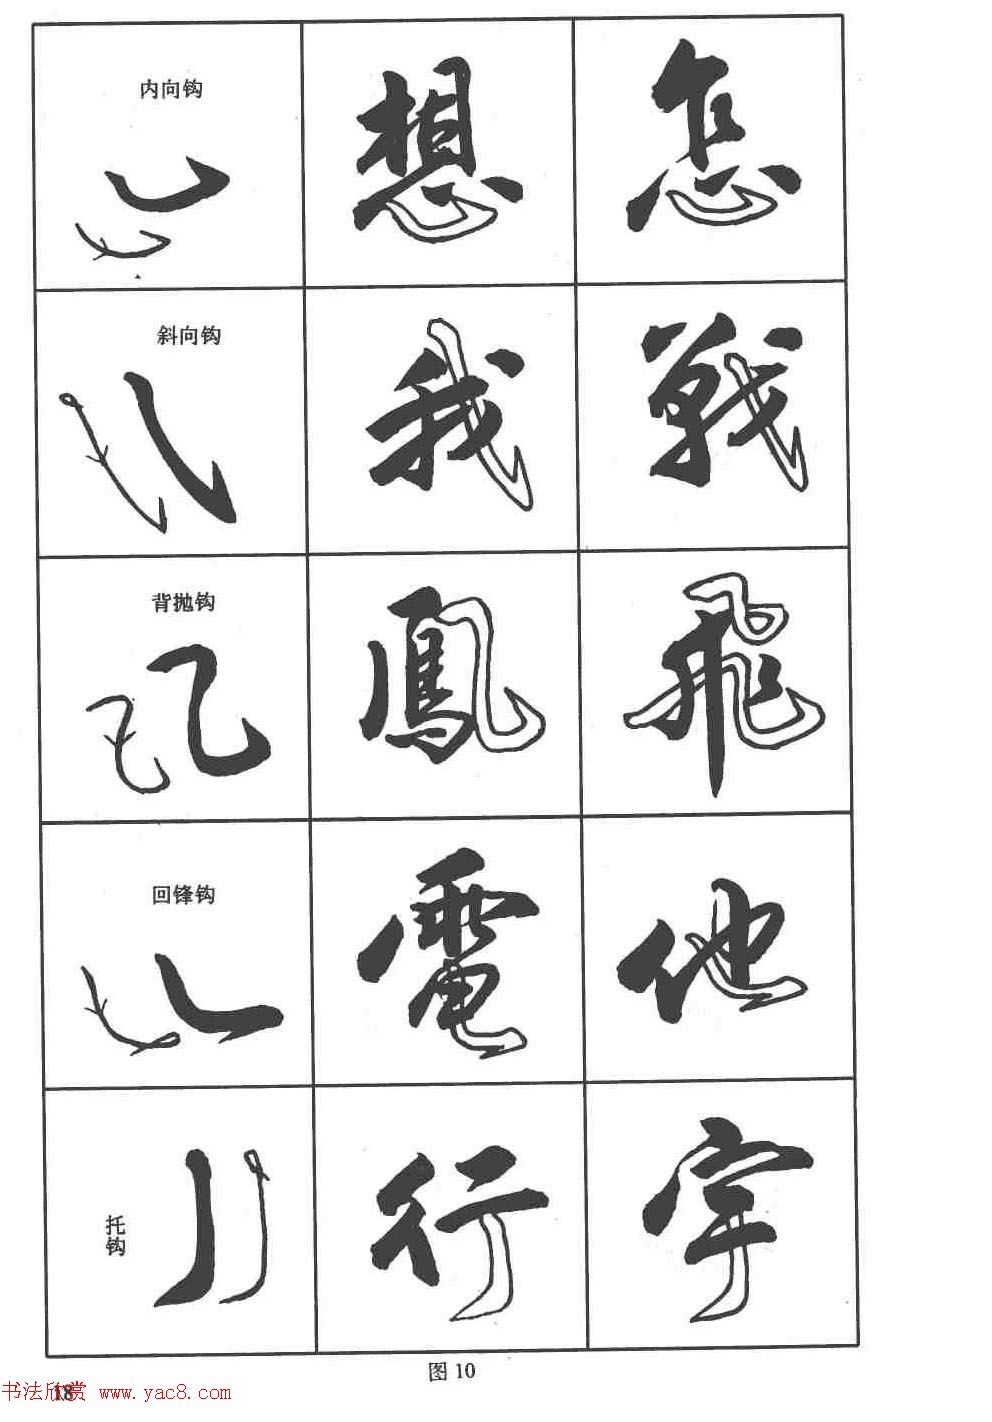 内向钩 想 怎
斜向钩 我 戰
背抛钩 鳳 飛
回锋钩 電 他
托钩 行 宇
图 10
18
书法欣赏 www.yac8.com